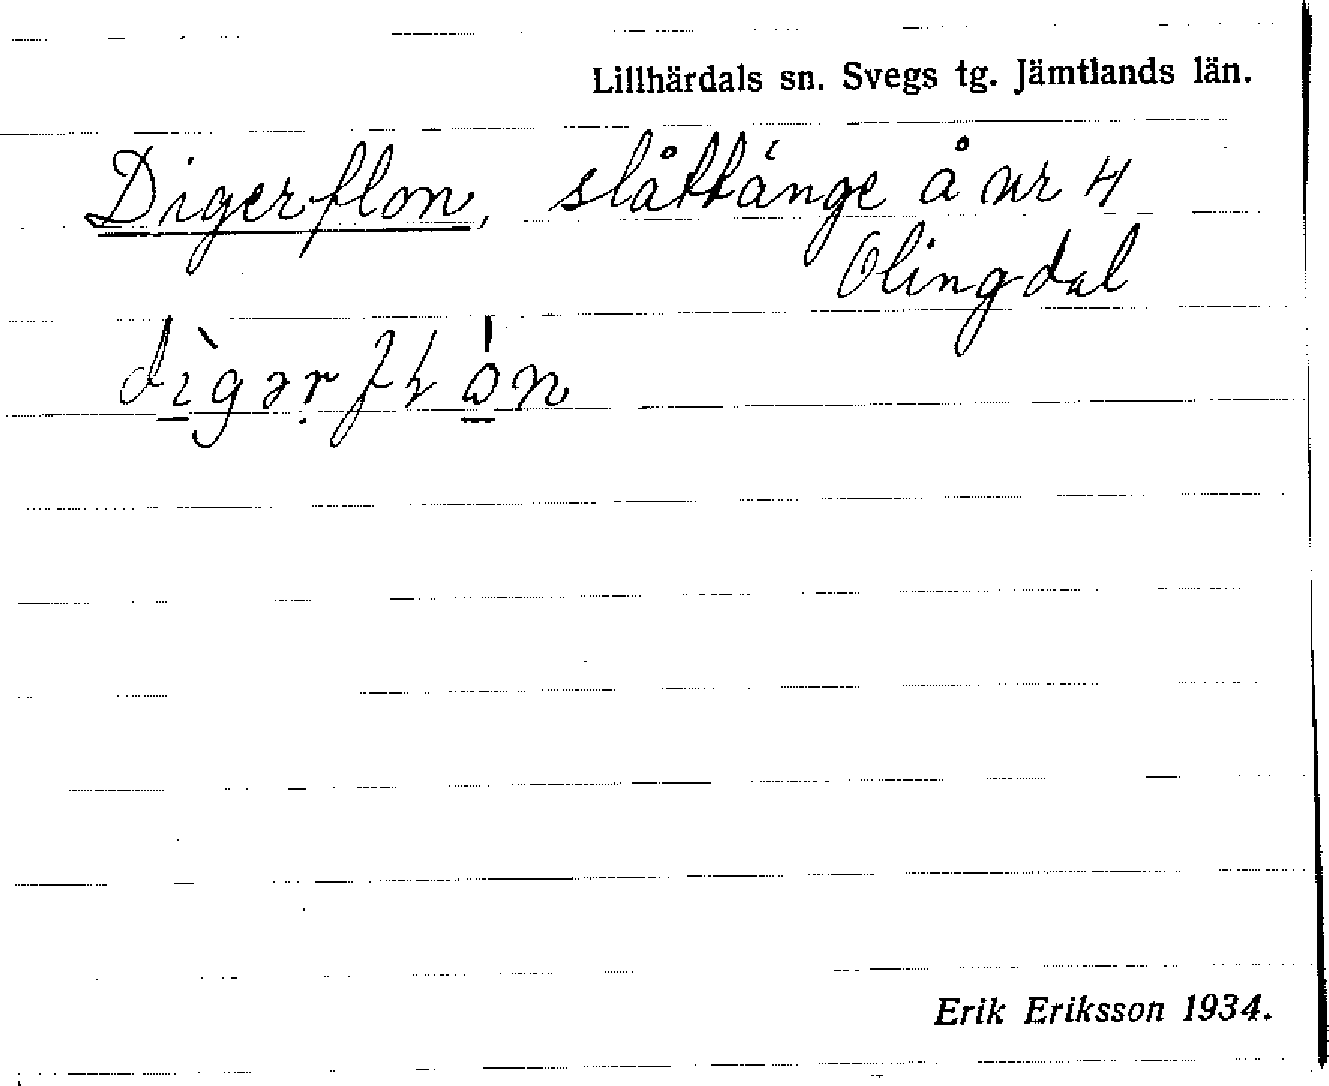 Lillhärdals sn. Svegs tg. Jämtlands län.
Digerflon, slåttänge å nr 4
Olingdal
Erik Eriksson 1934.